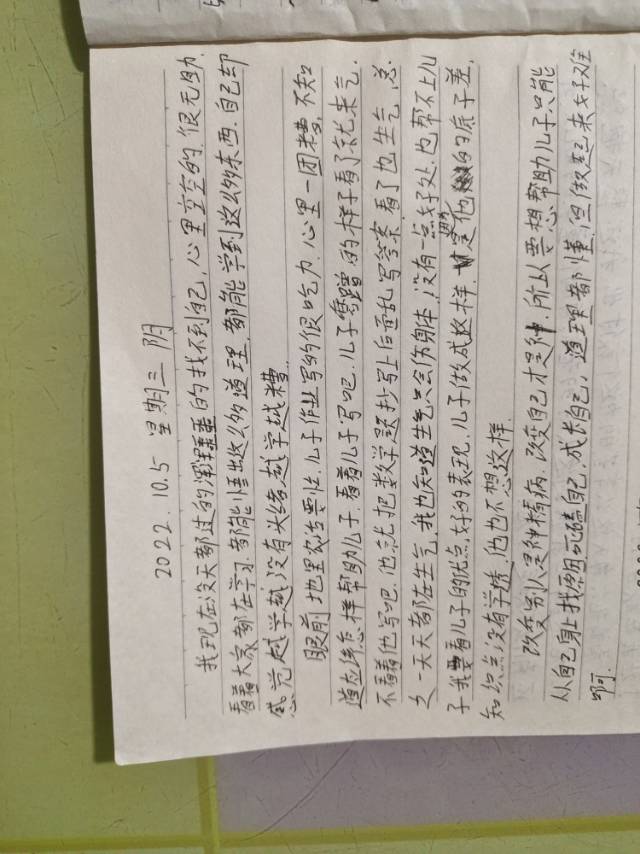 2022. 10. 5  星期三  阴
我现在没天都过的浑浑噩噩的找不到自己,心里空空的,很无助.
看着大家都在学习,都能悟出这么多的道理,都能学到这么多东西,自己却
感觉越学越没有头绪,越学越糟.
眼前,地里农活要忙,儿子作业写的很吃力,心里一团糟,不知
道应缔怎样帮助儿子.看着儿子写吧,儿子磨蹭的样子看了就来气.
不看着他写吧,他就把数学题抄写上后面乱写答案,看了也生气,总
之一天天都在生气,我也知道生气只会伤身体,没有一点好处,也帮不上儿
子.我要看儿子的优点,好的表现,儿子做成这样,是因为他的底子差,
知识点没有学透,他也不想这样.
改变别人是神精病,改变自己才是神,所以要想帮助儿子只能
从自己身上找原因,死磕自己,成长自己,道理都懂,但做起来好难
啊.